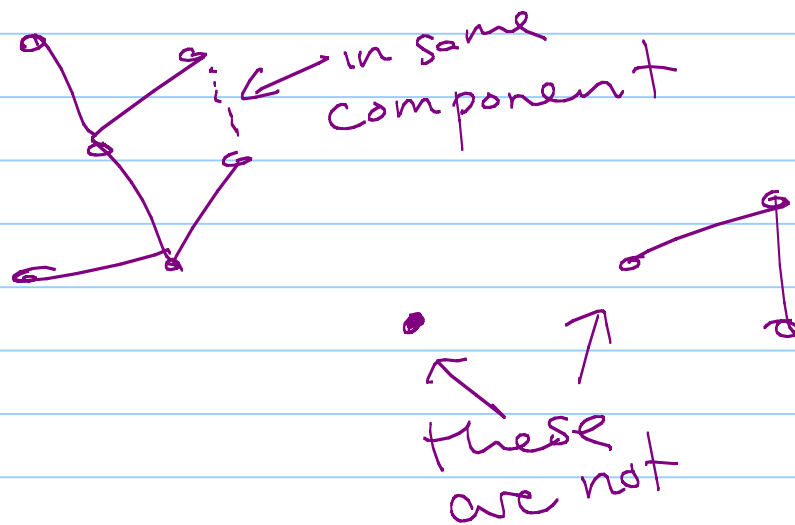 in same
component
these
are not